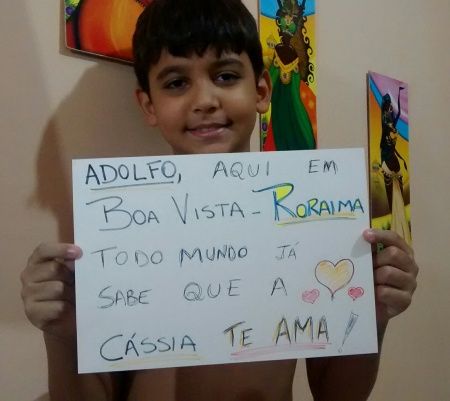 ADOLFO, AQUI EM
BOA VISTA - RORAIMA
TODO MUNDO JÁ
SABE QUE A
CÁSSIA TE AMA!